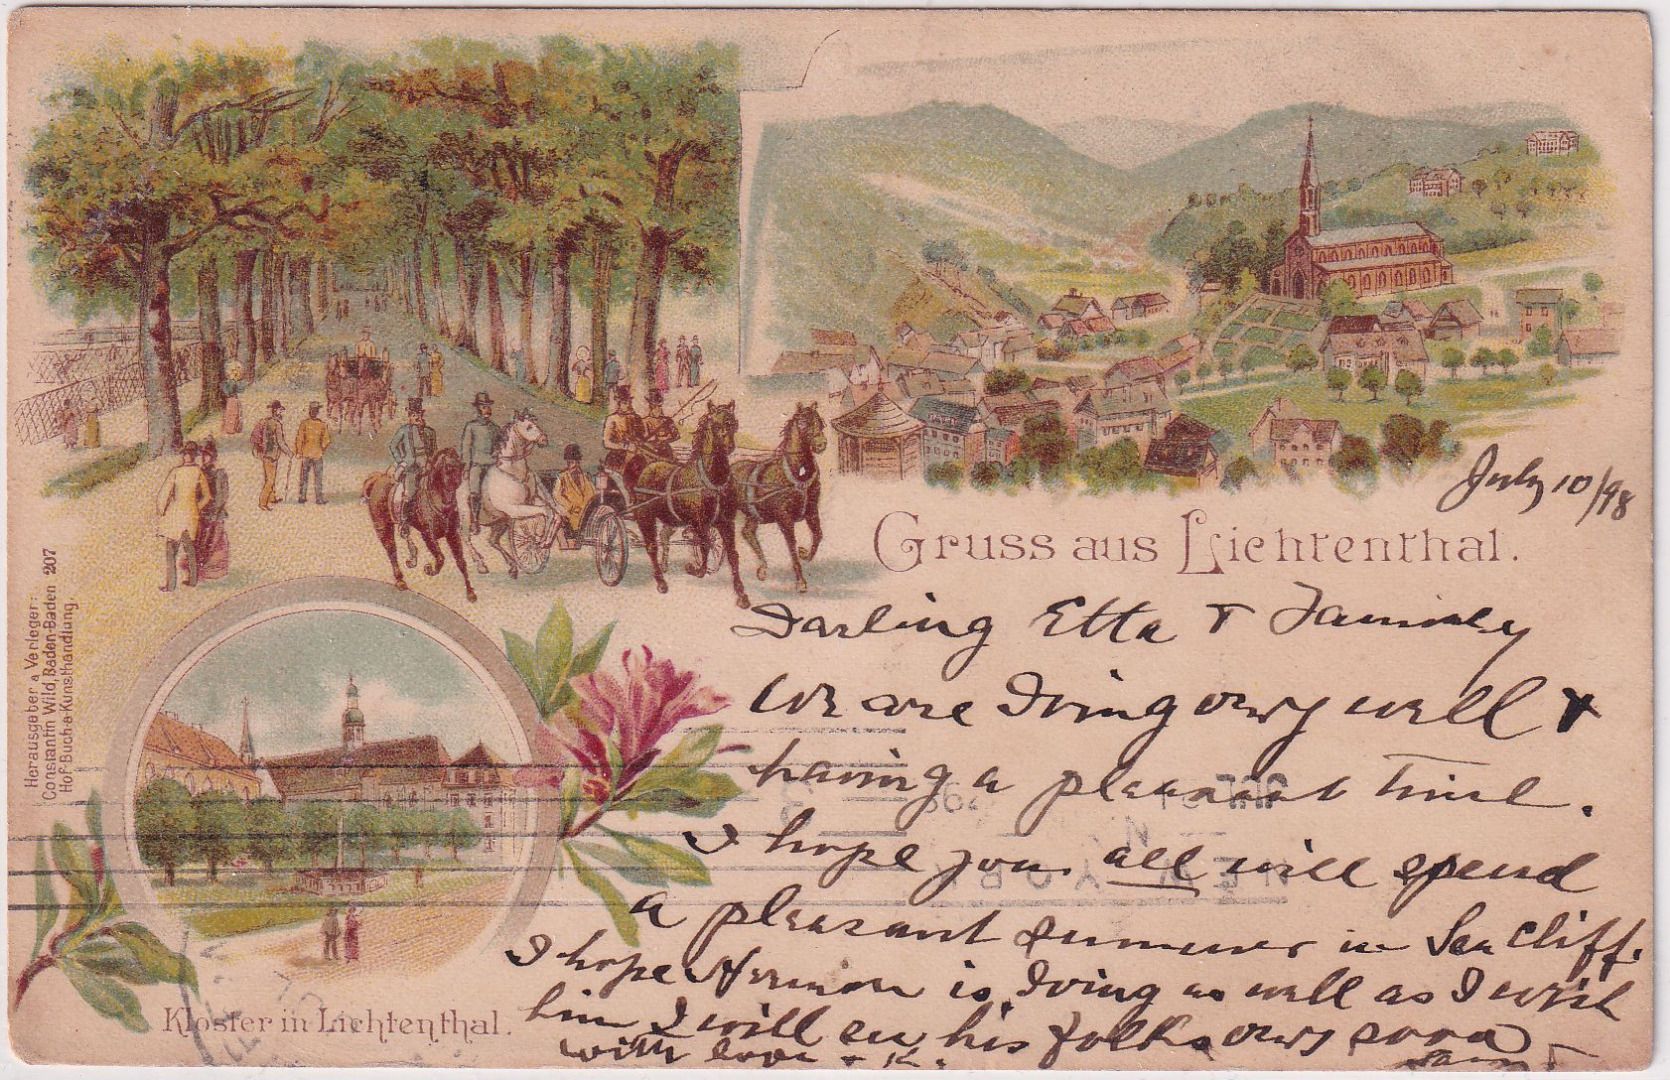 July 10/98
Gruss aus Lichtenthal.
Darling Etta & Family
We are doing very well &
having a pleasant time.
I hope you all will spend
a pleasant summer in Sea Cliff.
I hope Herman is doing as well as I wish
him I will see his folks very soon
with love & K.
Herausgeber & Verleger:
Constantin Wild, Baden-Baden 207
Hof-Buch-&-Kunsthandlung.
Kloster in Lichtenthal.
NEW YORK
N.
JUL
98